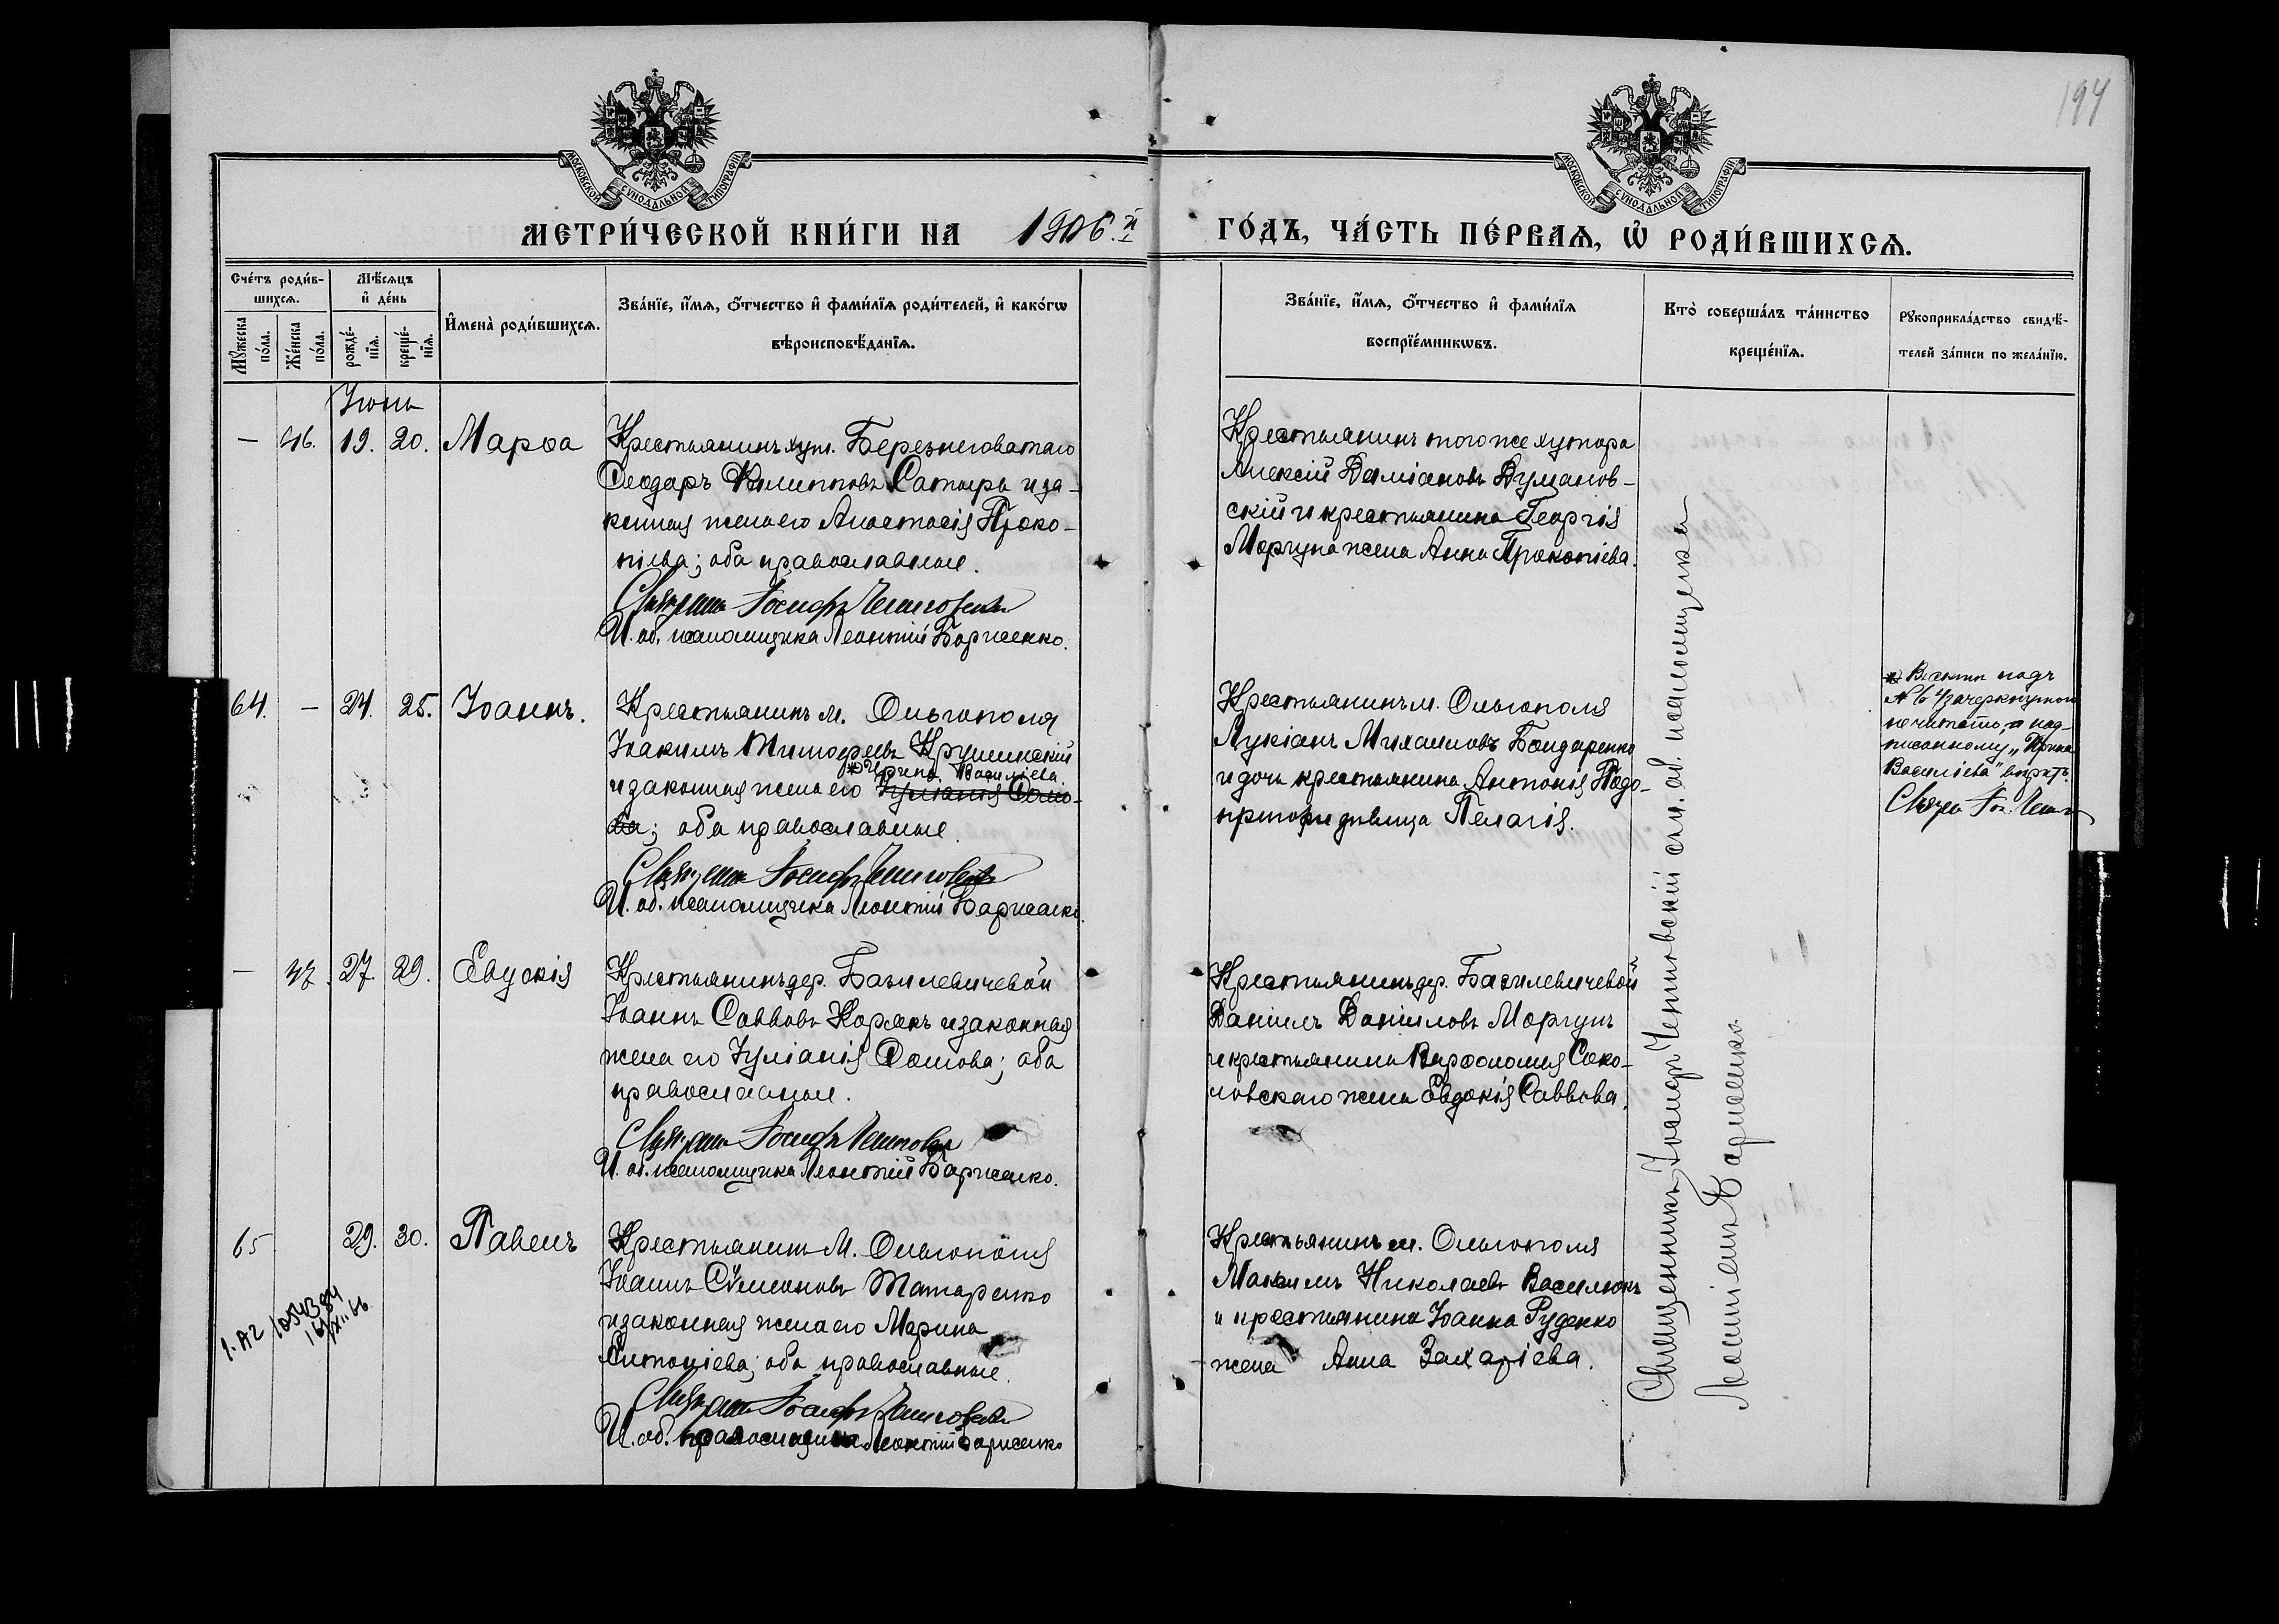 194
МОСКОВСКОЙ СУНОДАЛЬНОЙ ТИПОГРАФІИ
МОСКОВСКОЙ СУНОДАЛЬНОЙ ТИПОГРАФІИ
МЕТРИ́ЧЕСКОЙ КНИ́ГИ НА 1906.й ГО́ДЪ, ЧА́СТЬ ПЕ́РВАѦ, Ѽ РОДИ́ВШИХСѦ.
Сче́тъ роди́в-
шихсѧ.
Мꙋ́жеска по́ла.
Же́нска по́ла.
Мѣ́сѧцъ
и҆ де́нь
рожде́-
нїѧ.
креще́-
нїѧ.
И҆мена̀ роди́вшихсѧ.
Зва́нїе, и҆́мѧ, ѻ҆́тчество и҆ фами́лїѧ роди́телей, и҆ како́гѡ
вѣроисповѣ́данїѧ.
Зва́нїе, и҆́мѧ, ѻ҆́тчество и҆ фами́лїѧ
воспрїе́мникѡвъ.
Кто̀ соверша́лъ та́инство
креще́нїѧ.
Рꙋкоприкла́дство свидѣ́-
телей за́писи по жела́нїю.
Іюнь
— 46. 19. 20. Марѳа
Крестьянинъ хут. Березнеговатаго
Ѳеодоръ Филипповъ Сатыръ и за-
конная жена его Анастасія Проко-
піева; оба православные.
Священникъ Іосифъ Чепиговскій
И. об. псаломщика Леонтій Борисенко.
Крестьянинъ того же хутора
Алексій Даміановъ Думанов-
скій и крестьянина Георгія
Моргуна жена Анна Прокопіева.
64. — 24. 25. Іоаннъ.
Крестьянинъ м. Ольгополя
Іоакимъ Тимофеевъ Крушинскій
*) Ирина Василіева.
и законная жена его Іуліанія Сомо-
ва; оба православные.
Священникъ Іосифъ Чепиговскій
И. об. псаломщика Леонтій Борисенко.
Крестьянинъ м. Ольгополя
Лукіанъ Михаиловъ Бондаренко
и дочь крестьянина Антонія Подо-
пригори дѣвица Пелагія.
*) Въ актѣ подъ
№ 64 зачеркнутого
не читать, а над-
писанному „Ирина
Василіева" вѣрить.
— 47. 27. 29. Евдокія
Крестьянинъ дер. Базилевичевой
Іоаннъ Савввовъ Корякъ и законная
жена его Іуліанія Сомова; оба
православные.
Священникъ Іосифъ Чепиговскій
И. об. псаломщика Леонтій Борисенко.
Крестьянинъ дер. Базилевичевой
Даніилъ Даніиловъ Моргунъ
и крестьянина Варѳоломея Соко-
ловскаго жена Евдокія Саввова.
65 29. 30. Павелъ
Крестьянинъ м. Ольгополя
Іоаннъ Сѵмеоновъ Татаренко
и законная жена его Марина
Антоніева; оба православные.
Священникъ Іосифъ Чепиговскій
И. об. псаломщика Леонтій Борисенко
Крестьянинъ м. Ольгополя
Максимъ Николаевъ Василюкъ
и крестьянина Іоанна Руденко
жена Анна Захаріева.
Священникъ Іосифъ Чепиговскій съ и. об. псаломщика
Леонтіемъ Борисенко.